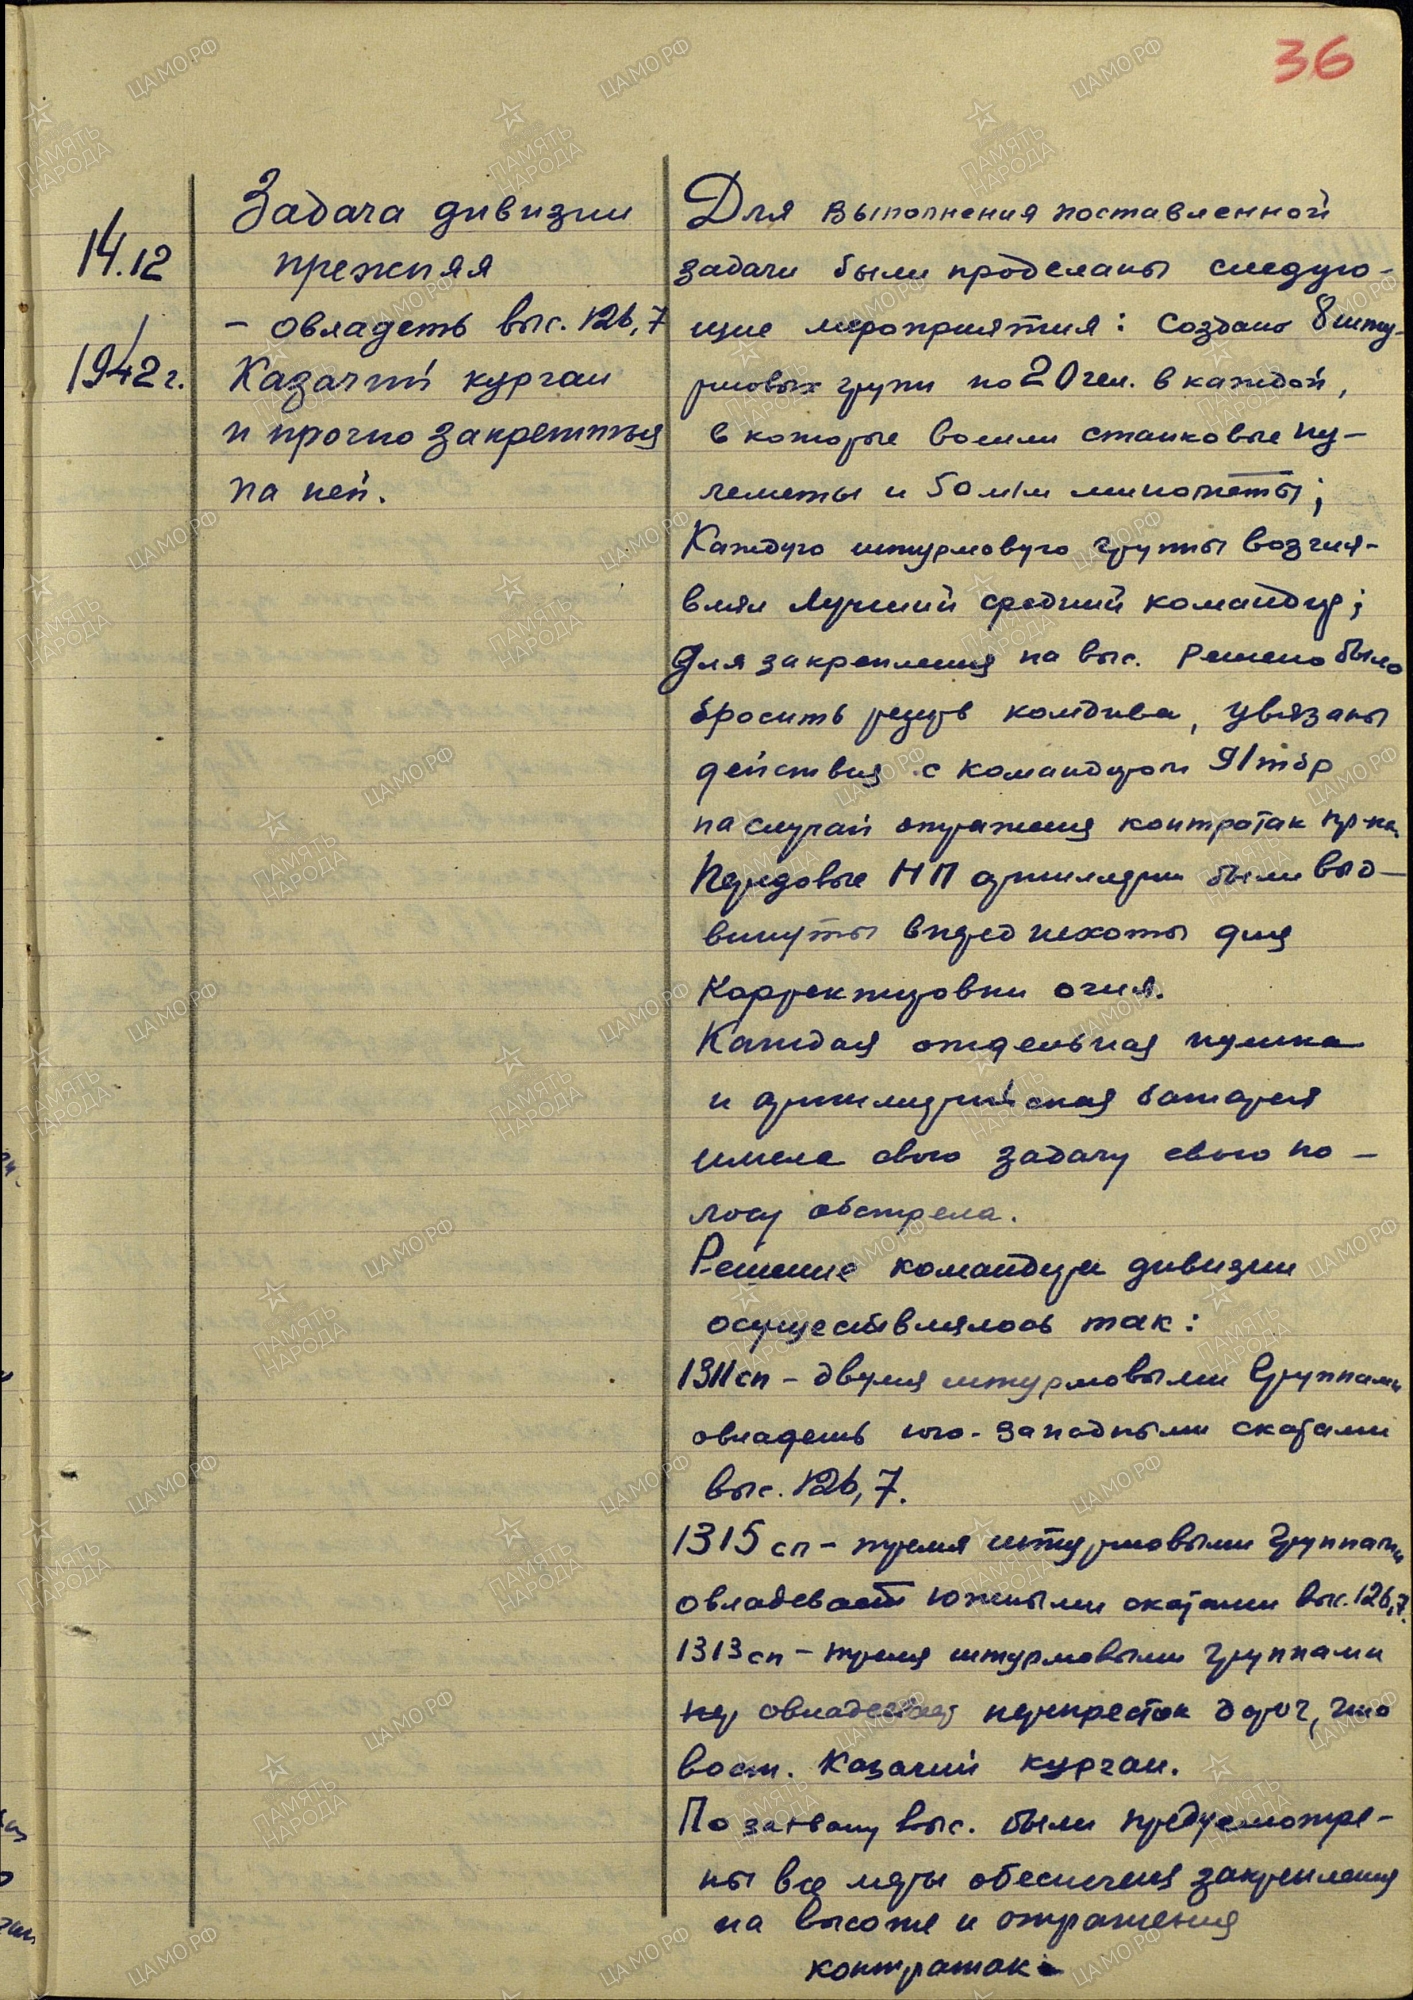 36
14.12
1942 г.
Задача дивизии
прежняя
- овладеть выс. 126,7
Казачий курган
и прочно закрепиться
на ней.
Для выполнения поставленной
задачи были проделаны следую-
щие мероприятия: создано 8 шту-
рмовых групп по 20 чел. в каждой,
в которые вошли станковые пу-
леметы и 50 м/м минометы;
Каждую штурмовую группы возгла-
влял лучший средний командир;
Для закрепления на выс. решено было
бросить резерв комдива, увязаны
действия с командиром 91 тбр
на случай отражения контратак пр-ка.
Передовые НП артиллерии были выд-
винуты вперед пехоты для
корректировки огня.
Каждая отдельная пушка
и артиллерийская батарея
имела свою задачу свою по-
лосу обстрела.
Решение командира дивизии
осуществлялось так:
1311 сп - двумя штурмовыми группами
овладеть юго-западными скатами
выс. 126,7.
1315 сп - тремя штурмовыми группами
овладевает южными скатами выс. 126,7.
1313 сп - тремя штурмовыми группами
пер овладевает перекресток дорог, что
вост. Казачий курган.
По захвату выс. были предусмотре-
ны все меры обеспечения закрепления
на высоте и отражения
контратак.